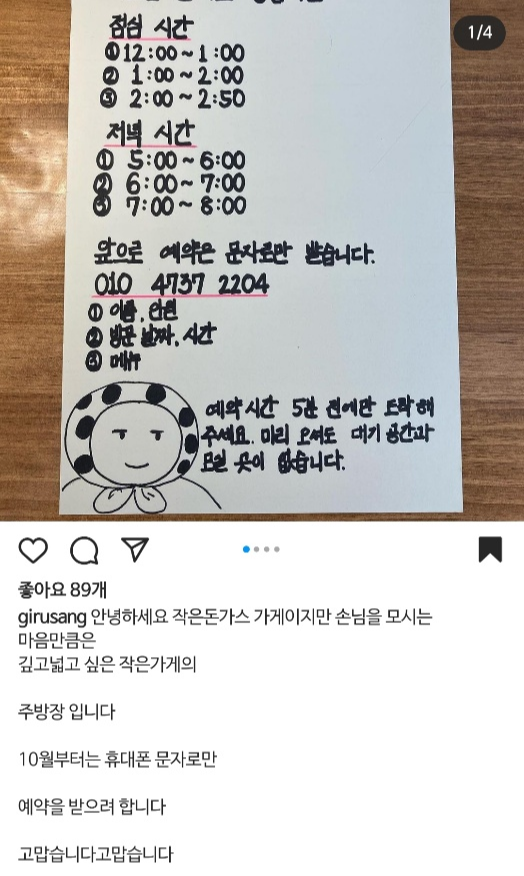 1/4
점심 시간
① 12:00 ~ 1:00
② 1:00 ~ 2:00
③ 2:00 ~ 2:50
저녁 시간
① 5:00 ~ 6:00
② 6:00 ~ 7:00
③ 7:00 ~ 8:00
앞으로 예약은 문자로만 받습니다.
010 4737 2204
① 이름, 인원
② 방문 날짜, 시간
③ 메뉴
예약시간 5분 전에만 도착해
주세요. 미리 오셔도 대기 공간과
모실 곳이 없습니다.
좋아요 89개
girusang 안녕하세요 작은돈가스 가게이지만 손님을 모시는
마음만큼은
깊고넓고 싶은 작은가게의
주방장 입니다
10월부터는 휴대폰 문자로만
예약을 받으려 합니다
고맙습니다고맙습니다